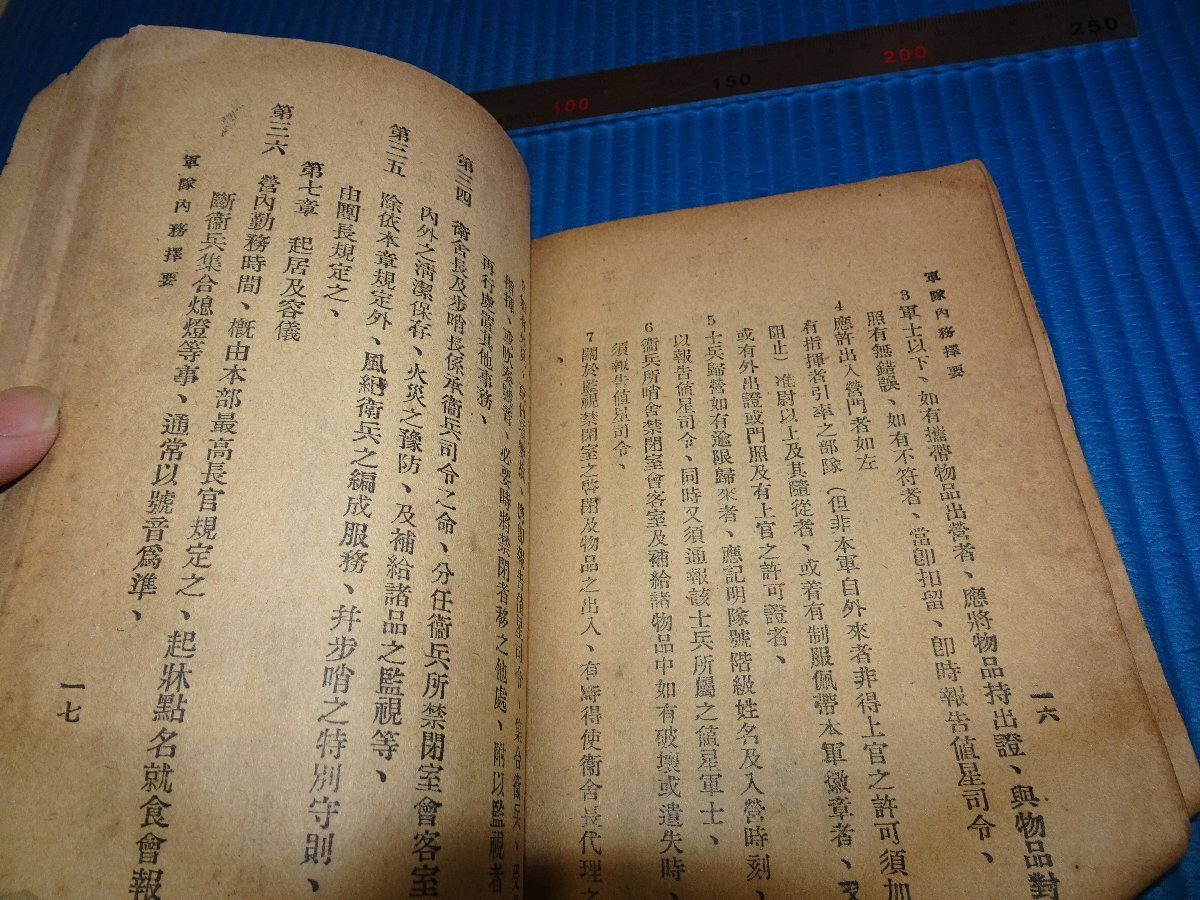 軍隊內務擇要
一六
3 軍士以下、如有攜帶物品出營者、應將物品持出證、與物品對
照有無錯誤、如有不符者、當卽扣留、卽時報告値星司令、
4 應許出入營門者如左
有指揮者引率之部隊(但非本軍自外來者非得上官之許可須加
阻止)准尉以上及其隨從者、或着有制服佩帶本軍徽章者、又
或有外出證或門照及有上官之許可證者、
5 士兵歸營如有逾限歸來者、應記明隊號階級姓名及入營時刻、
以報告値星司令、同時又須通報該士兵所屬之値星軍士、
6 衞兵所哨舍禁閉室會客室及補給諸物品中如有破壞或遺失時、
須報告値星司令、
7 關於監視禁閉室之啓閉及物品之出入、有時得使衞舍長代理之
、必要時將禁閉者移之他處、附以監視者
再行處置其他事務、
第三四 衞舍長及步哨長係承衞兵司令之命、分任衞兵所禁閉室會客室
內外之淸潔保存、火災之豫防、及補給諸品之監視等、
第三五 除依本章規定外、風紀衞兵之編成服務、幷步哨之特別守則、
由團長規定之、
第七章 起居及容儀
第三六 營內勤務時間、槪由本部最高長官規定之、起牀點名就食會報
斷衞兵集合熄燈等事、通常以號音爲準、
軍隊內務擇要
一七
100
150
200
250